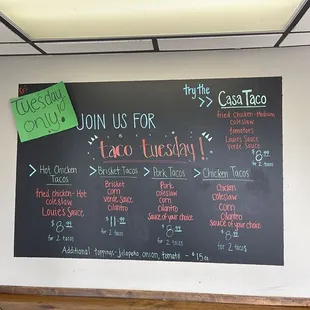 Tuesday
only!
JOIN US FOR
taco Tuesday!
try the
>> CASA TACO
fried Chicken - Medium
coleslaw
tomatoes
Louie's Sauce
Verde Sauce
$8.99
for 2 tacos
> Hot Chicken
Tacos
fried chicken - Hot
coleslaw
Louie's Sauce
$8.99
for 2 tacos
> Brisket Tacos
Brisket
corn
verde Sauce
cilantro
$11.99
for 2 tacos
> Pork Tacos
Pork
coleslaw
corn
cilantro
Sauce of your choice
$8.99
for 2 tacos
> Chicken Tacos
Chicken
coleslaw
corn
cilantro
sauce of your choice
$8.99
for 2 tacos
Additional toppings - jalapeño, onion, tomato -